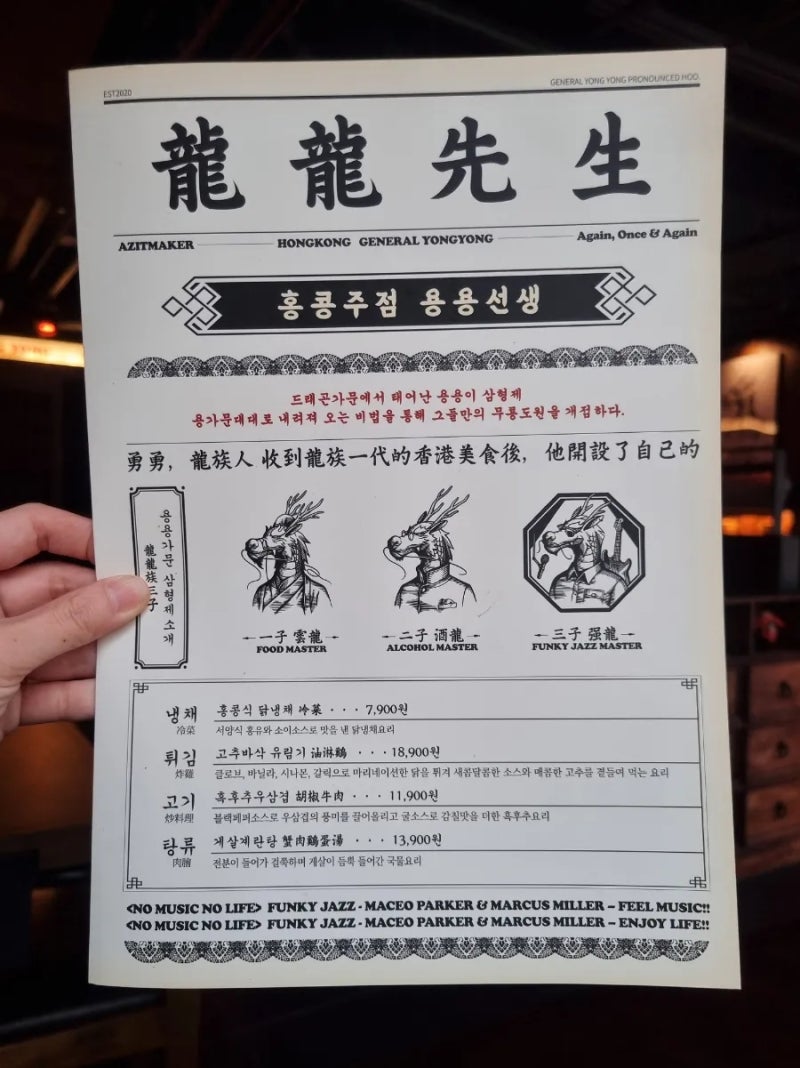 EST2020
GENERAL YONG YONG PRONOUNCED HOO.
龍龍先生
AZITMAKER
HONGKONG GENERAL YONGYONG
Again, Once & Again
홍콩주점 용용선생
드래곤가문에서 태어난 용용이 삼형제
용가문대대로 내려져 오는 비법을 통해 그들만의 무릉도원을 개점하다.
勇勇，龍族人 收到龍族一代的香港美食後，他開設了自己的
용용가문 삼형제소개
龍龍族三子
一子 雲龍
FOOD MASTER
二子 酒龍
ALCOHOL MASTER
三子 强龍
FUNKY JAZZ MASTER
냉채 홍콩식 닭냉채 冷菜 · · · 7,900원
冷菜 서양식 홍유와 소이소스로 맛을 낸 닭냉채요리
튀김 고추바삭 유림기 油淋鷄 · · · 18,900원
炸雞 클로브, 바닐라, 시나몬, 갈릭으로 마리네이션한 닭을 튀겨 새콤달콤한 소스와 매콤한 고추를 곁들여 먹는 요리
고기 흑후추우삼겹 胡椒牛肉 · · · 11,900원
炒料理 블랙페퍼소스로 우삼겹의 풍미를 끌어올리고 굴소스로 감칠맛을 더한 흑후추요리
탕류 게살계란탕 蟹肉鷄蛋湯 · · · 13,900원
전분이 들어가 걸쭉하며 게살이 듬뿍 들어간 국물요리
<NO MUSIC NO LIFE> FUNKY JAZZ - MACEO PARKER & MARCUS MILLER – FEEL MUSIC!!
<NO MUSIC NO LIFE> FUNKY JAZZ - MACEO PARKER & MARCUS MILLER – ENJOY LIFE!!